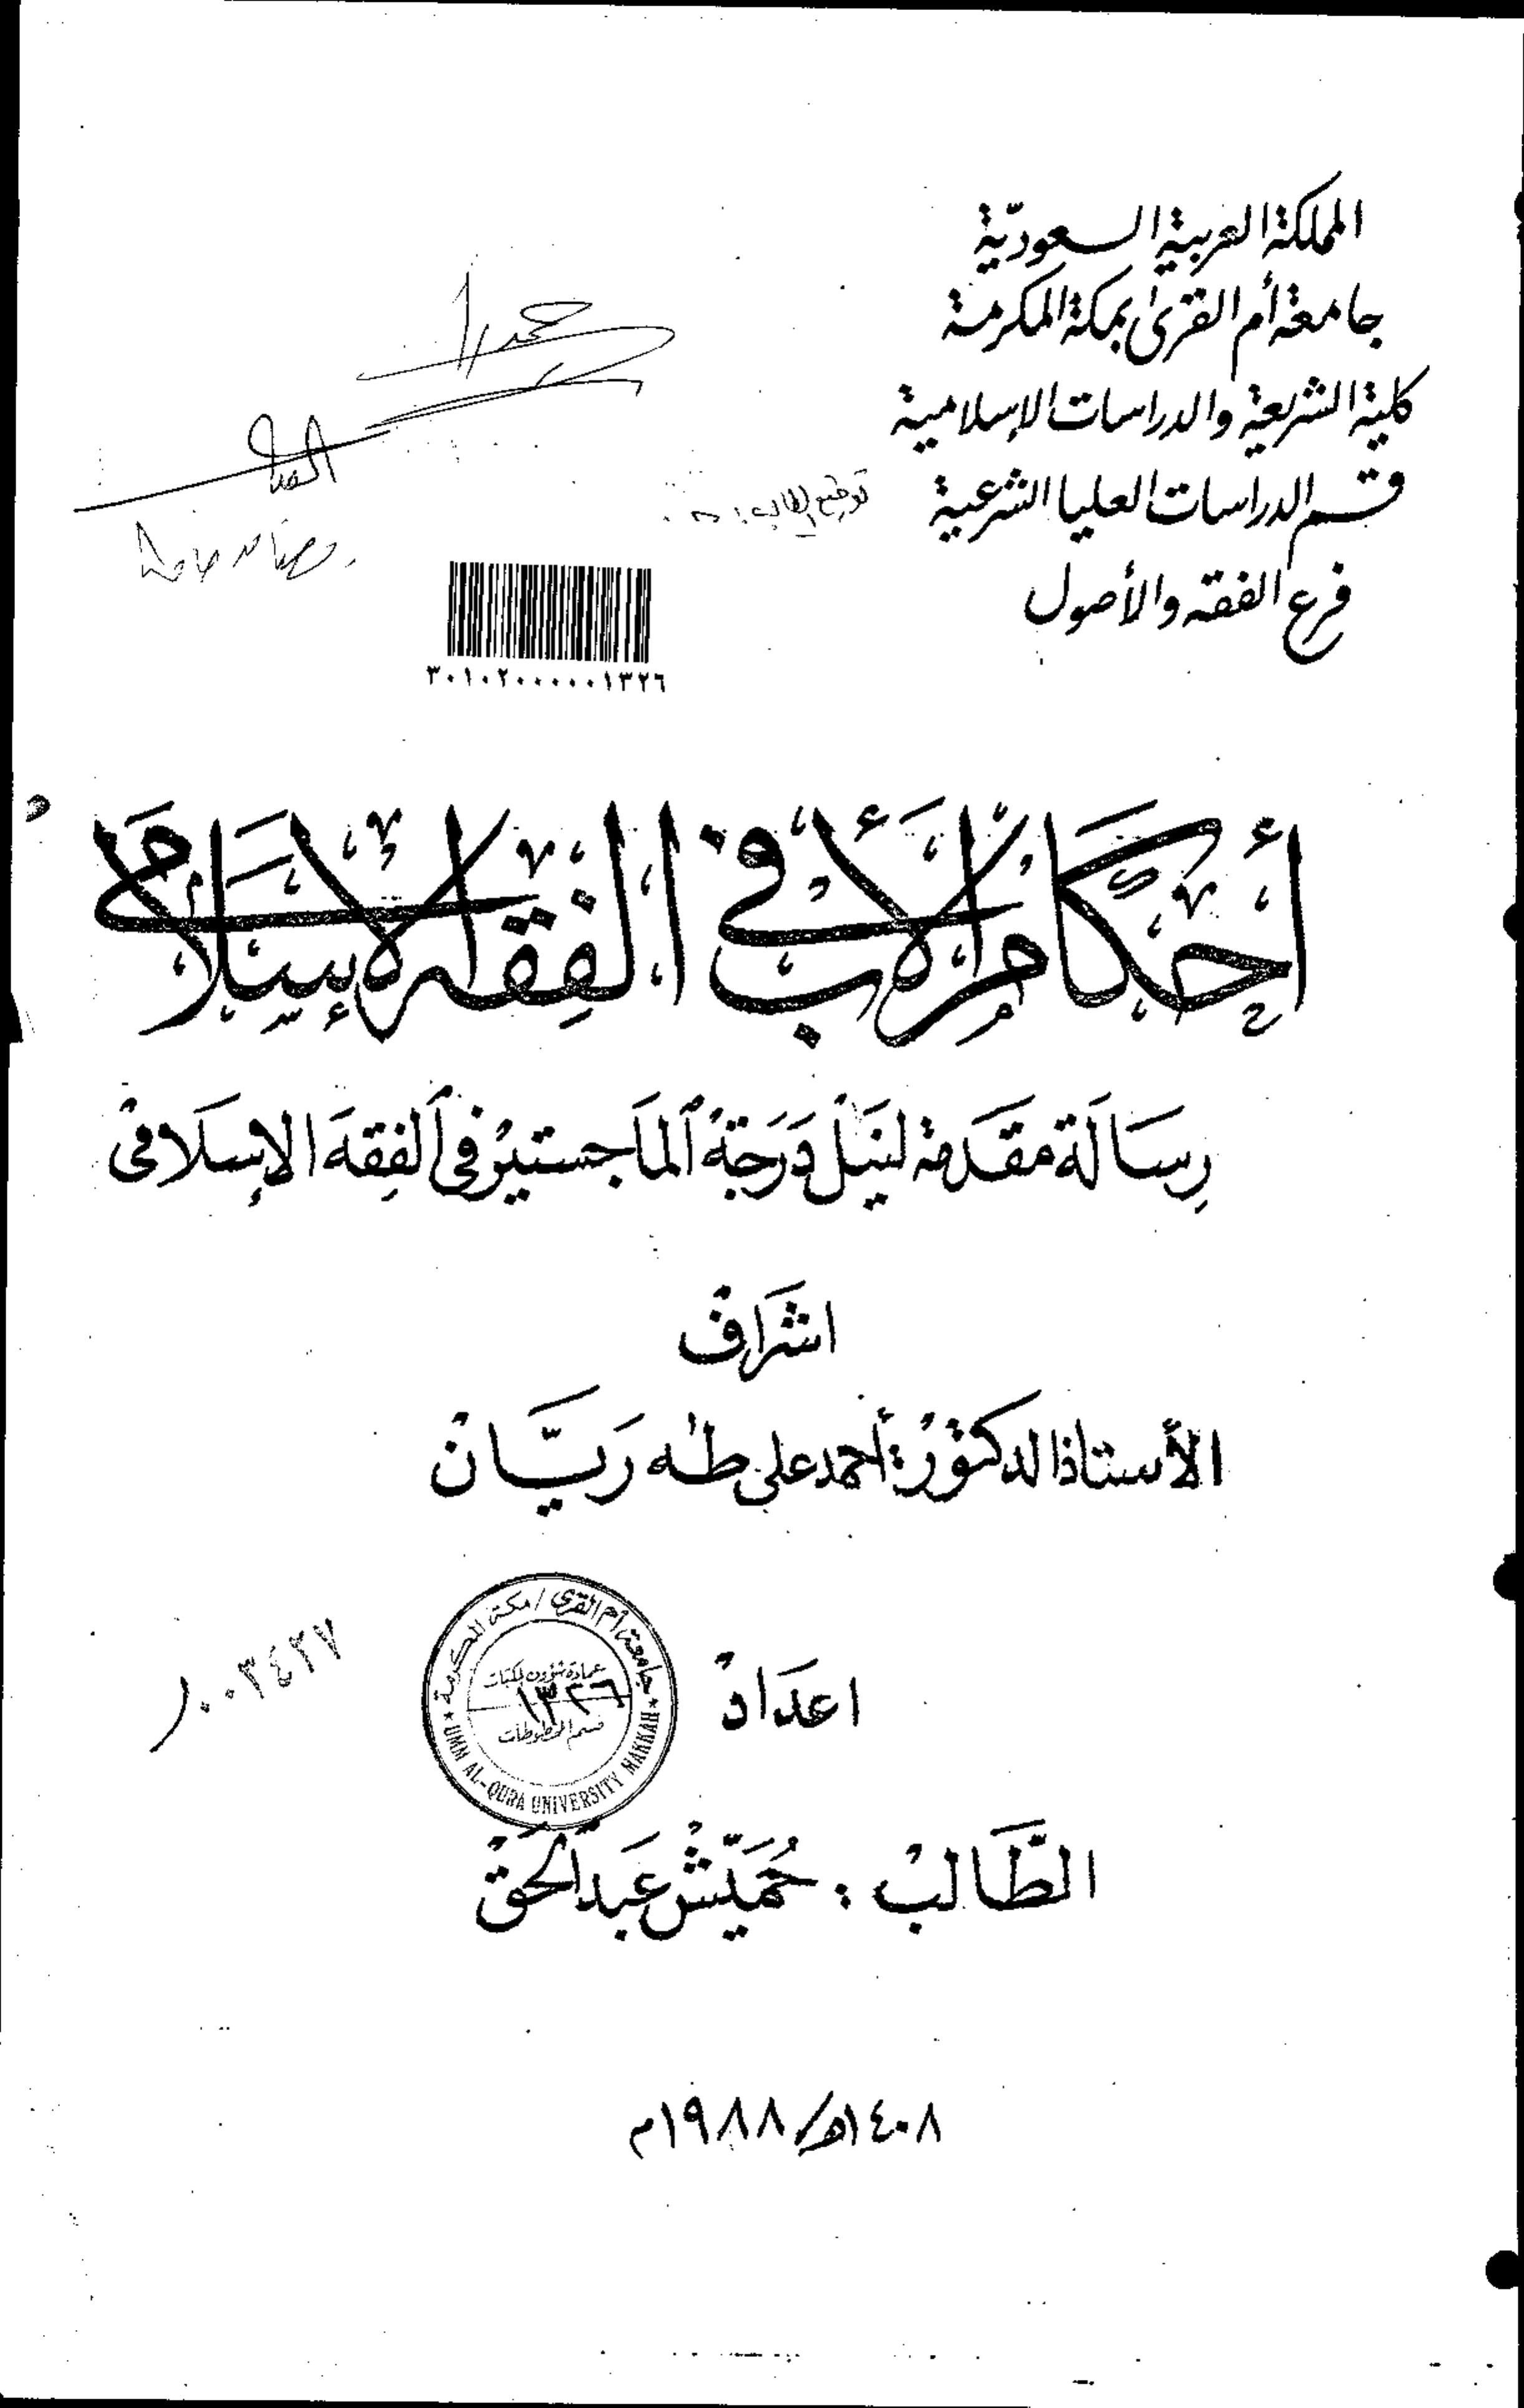 المملكة العربية السعوديّة
جامعة أم القرى بمكة المكرمة
كلية الشريعة والدراسات الإسلامية
قسم الدراسات العليا الشرعية
توقيع الطالب:
فرع الفقه والأصول
٣٠١٠٢٠٠٠٠٠١٣٢٦
أحكام الأب في الفقه الإسلامي
رسالة مقدمة لنيل درجة الماجستير في الفقه الإسلامي
اشراف
الأستاذ الدكتور: أحمد علي طه ريّان
جامعة أم القرى / مكة المكرمة
عمادة شؤون المكتبات
١٣٢٦
قسم المخطوطات
UMM AL-QURA UNIVERSITY MAKKAH
اعداد
٠٠٣٤٢٧
الطّالب: حُميّش عبد الحق
١٤٠٨هـ/١٩٨٨م